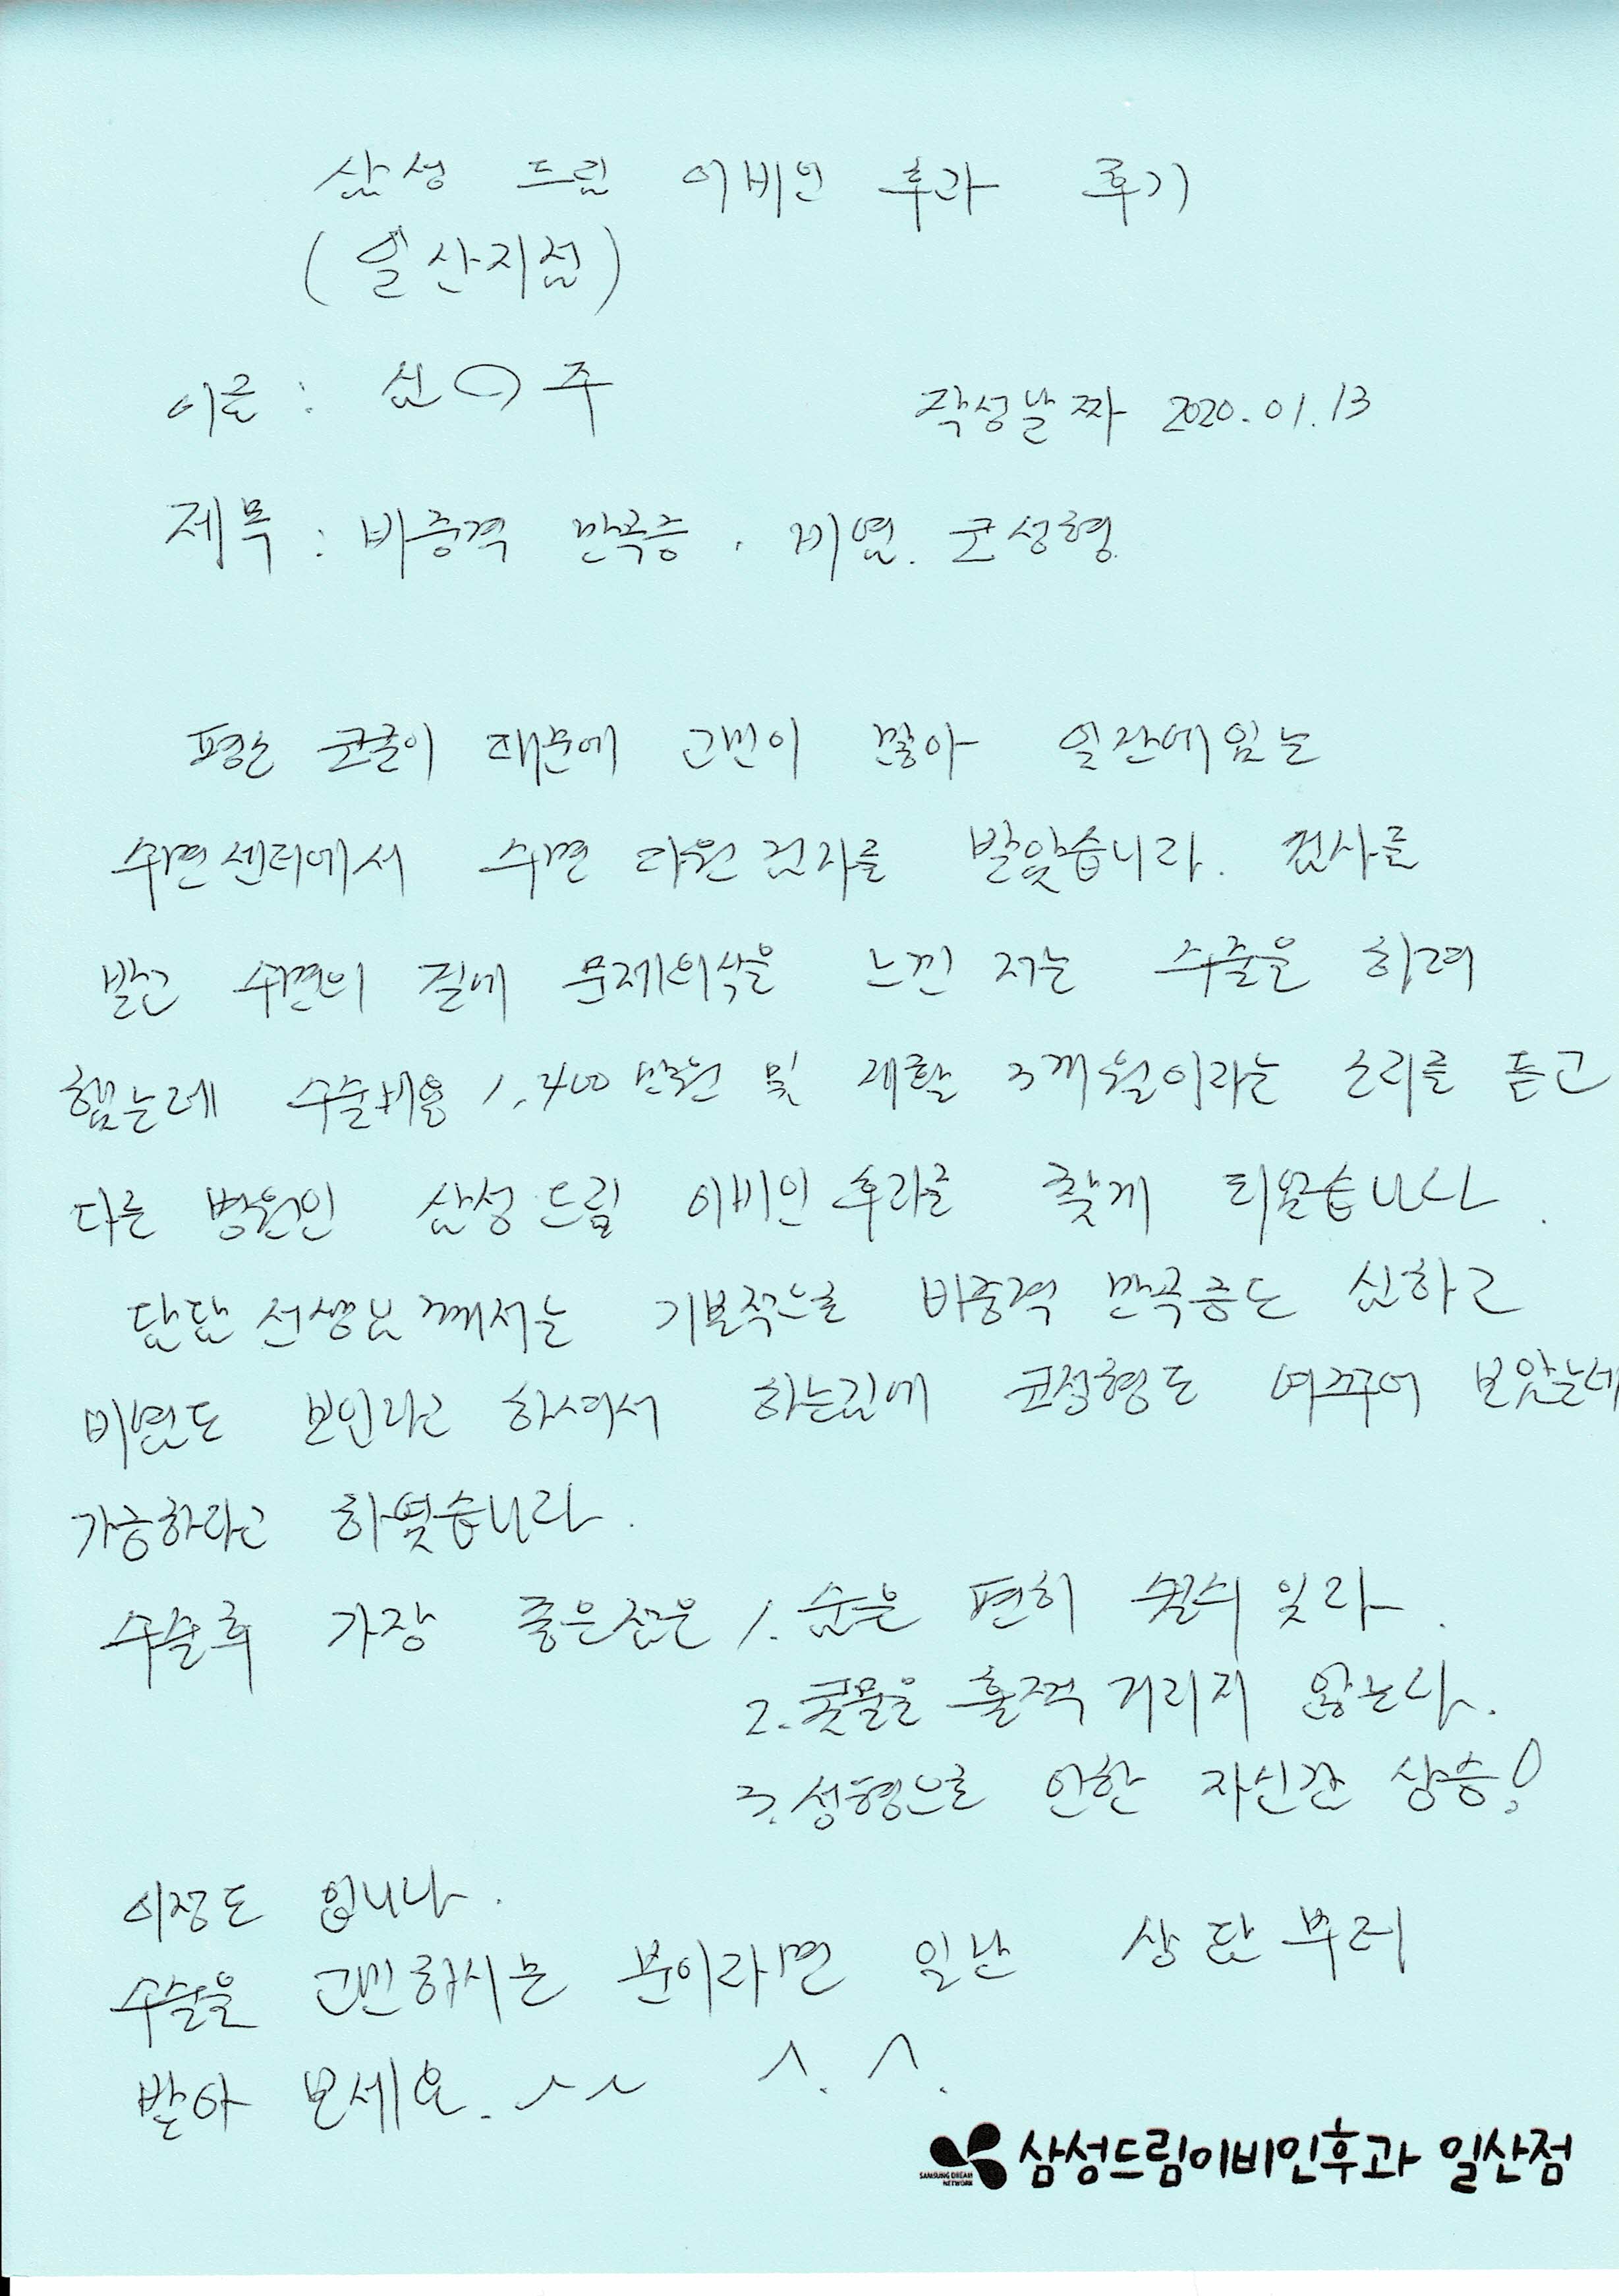 삼성 드림 이비인 후과 후기
(일산지점)
이름 : 심○주 작성날짜 2020.01.13
제목 : 비중격 만곡증, 비염. 코성형
평소 코골이 때문에 고민이 많아 일산에있는
수면센터에서 수면 다원검사를 받았습니다. 검사를
받고 수면의 질에 문제의식을 느낀 저는 수술을 하려
했는데 수술비용 1,400만원 및 재활 3개월이라는 소리를 듣고
다른 병원인 삼성드림 이비인후과를 찾게 되었습니다.
담당선생님께서는 기본적으로 비중격 만곡증도 심하고
비염도 보인다고 하셔서 하는김에 코성형도 여쭈어 보았는데
가능하다고 하였습니다.
수술후 가장 좋은점은 1. 숨을 편히 쉴수 있다.
2. 콧물을 훌쩍 거리지 않는다.
3. 성형으로 인한 자신감 상승!
이정도 입니다.
수술을 고민하시는 분이라면 일단 상담부터
받아 보세요. ^^ ^.^.
SAMSUNG DREAM
NETWORK
삼성드림이비인후과 일산점